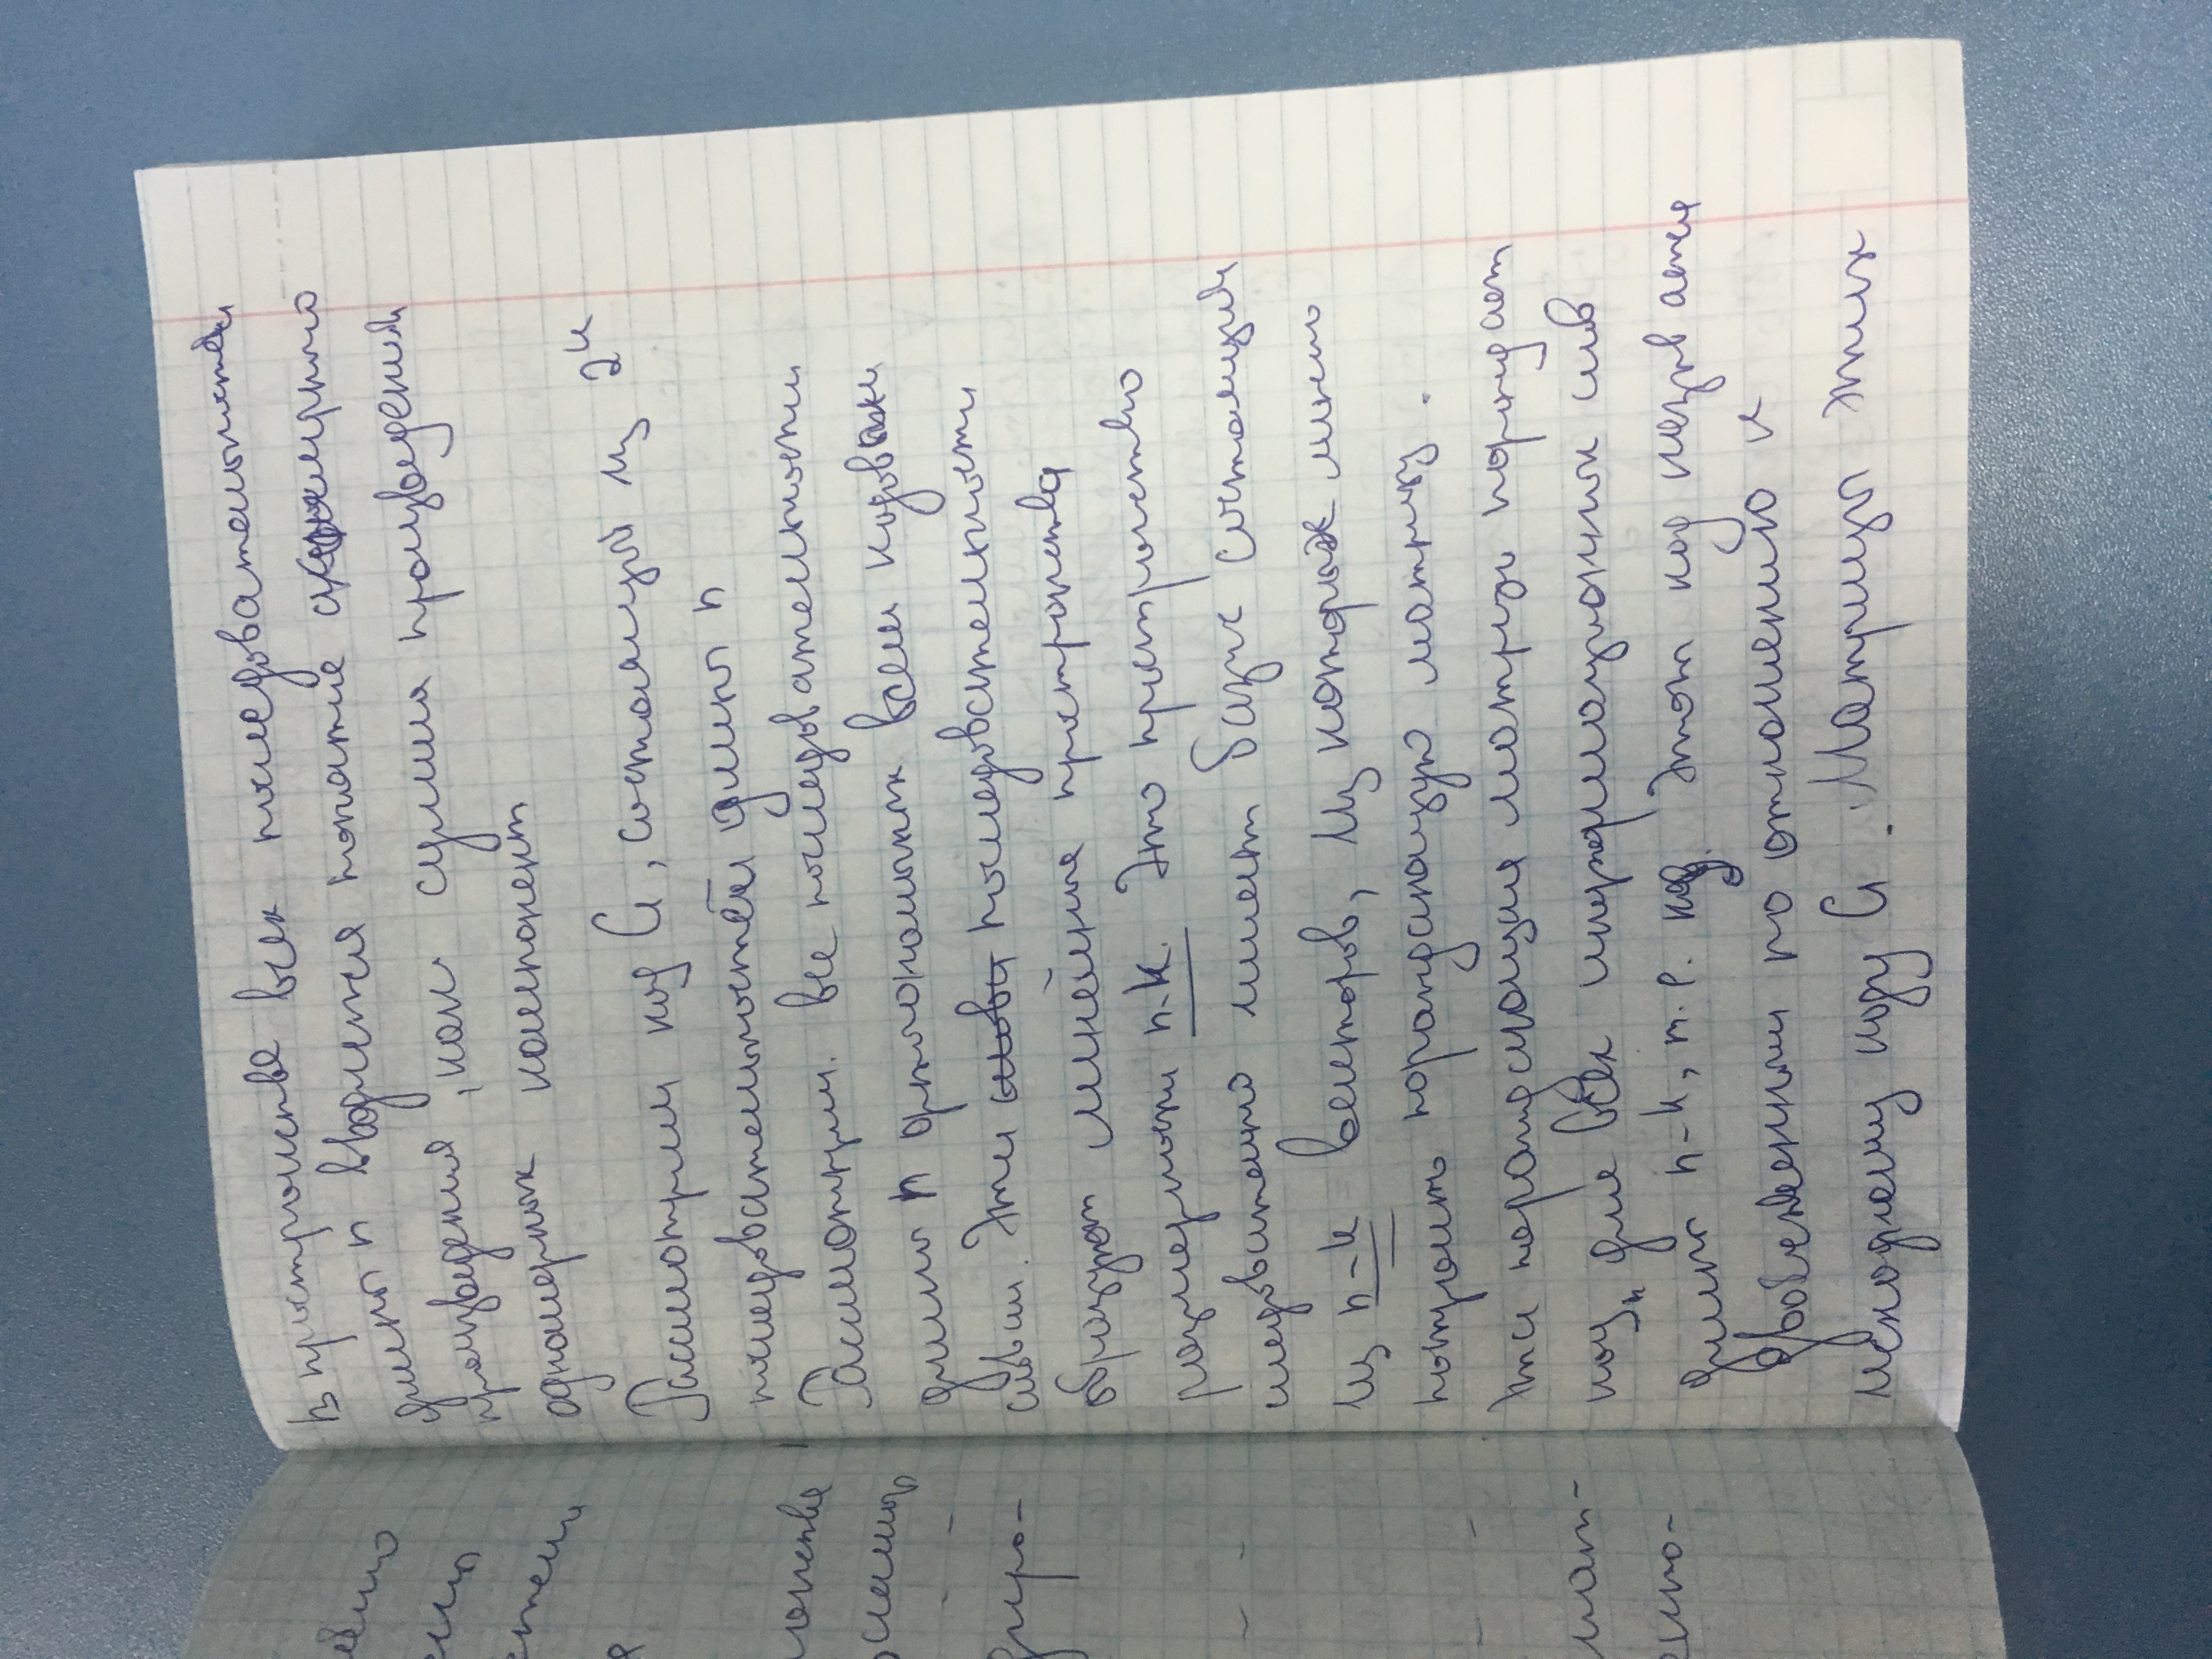 В пространстве всех последовательностей
длины n вводится понятие скалярного
произведения, как сумма произведений
одномерных компонент
Рассмотрим код G, состоящий из 2^k
последовательностей длины n
Рассмотрим. все последовательности
длины n ортогональных всем кодовым
словам. Эти слова последовательности
образуют линейные пространства
размерности n-k. Это пространство
следовательно имеет базис состоящий
из n-k векторов, из которых можно
построить порождающую матрицу.
Эта порождающая матрица порождает
код, для всех информационных слов
длины n-k, т.е. код. Этот код называется
двойственным по отношению к
исходному коду G. Матрицы этих
ластве
мат-